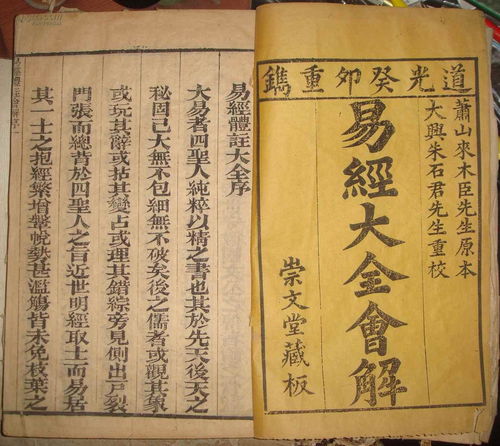 道光癸卯重鐫
蕭山來木臣先生原本
大興朱石君先生重校
易經大全會解
崇文堂藏板
易經體註大全序
大易者四聖人純粹以精之書也其於先天後天之
秘固已大無不包細無不破矣後之儒者或觀其象
或玩其辭或拈其變占或理其錯綜旁見側出戸裂
門張而總昔於四聖人之言近世明經取士而易居
其一士之抱經繁增鞶帨㪯甚濫觴皆未免枝葉之